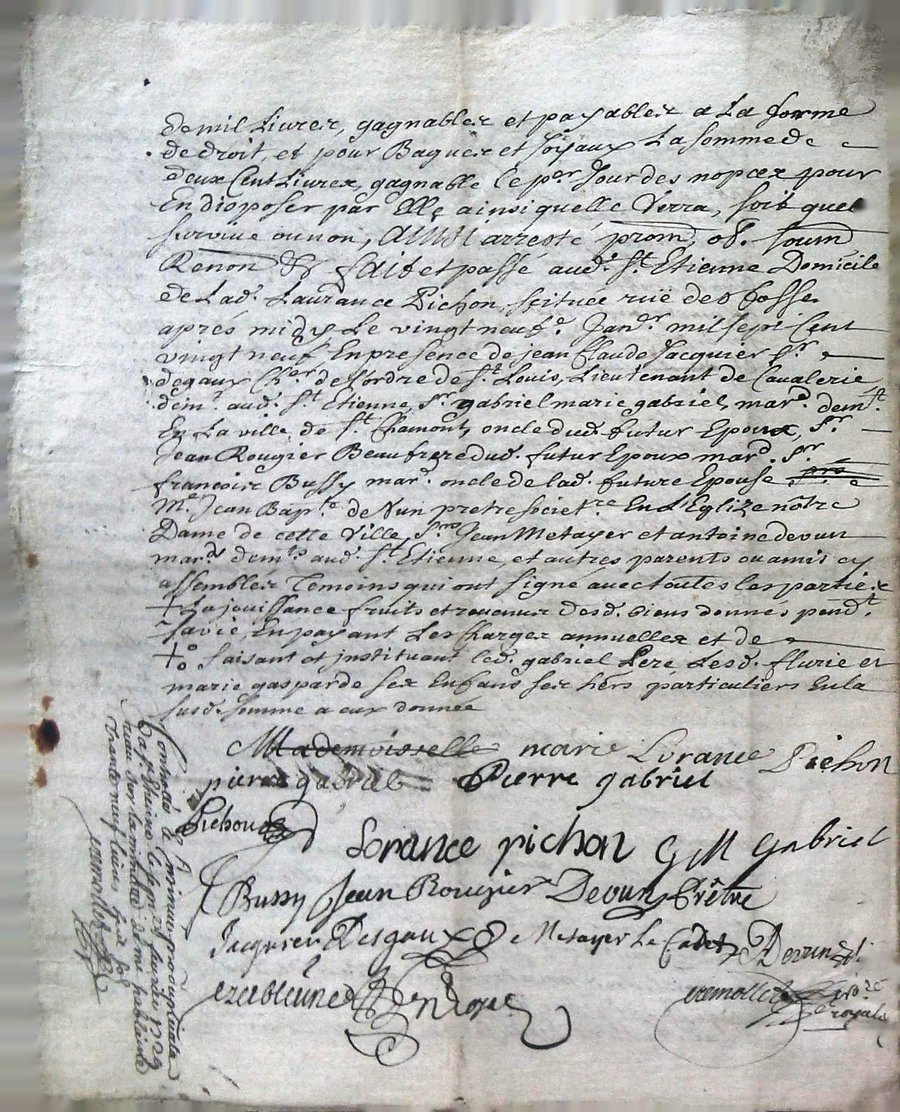 de mil Livres, gagnables et payables a La forme
de droit, et pour Bagues et Joyaux La somme de
deux Cent Livres, gagnable le per. Jour des nopces pour
En disposer par Elle ainsi quelle Verra, soit quel
survive ou non, Ainsi arresté prom. ob. soum
Renon &c fait et passé aud. St. Etienne Domicile
de Lad. Laurance Pichon, scituee ruë des fosses
aprés midy Le vingt neufe. Janer. mil sept Cent
vingt neuf En presence de jean Claude Jacquier Sr.
degaux Cher. de l'ordre de St. Louis, Lieutenant de Cavalerie
demt. aud. St. Etienne, Sr. gabriel marie gabriel, mard. demt.
En La ville de St. Chamont, oncle dud. futur Epoux, Sr.
Jean Rougier Beaufrere dud. futur Epoux mard. Sr.
francois Bussy mar. oncle de lad. future Epouse
Me. Jean Bapte. devun pretre societre. En L'Eglize nôtre
Dame de cette Ville, Srs. Jean Metayer et antoine devun
mards. demts. aud. St. Etienne, et autres parents ou amis cy
assembles Temoins qui ont signe avec toutes les parties
+ La jouissance fruits et revenus desd. biens donnés pendt.
sa vie, En payant Les charges annuelles et de
+o faisant et instituant led. gabriel Pere Lesd. flurie et
marie gasparde ses Enfans ses hers particuliers En la
susd. somme a eux donnée
Mademoiselle marie Lorance Pichon
pierre gabriel Pierre gabriel
Pichon
Lorance pichon G M Gabriel
Bussy Jean Rougier Devun Prêtre
Jacquier Desgaux Metayer Le Cadet Devun
Royale
royal
Controllé
1729
Trante neuf livres